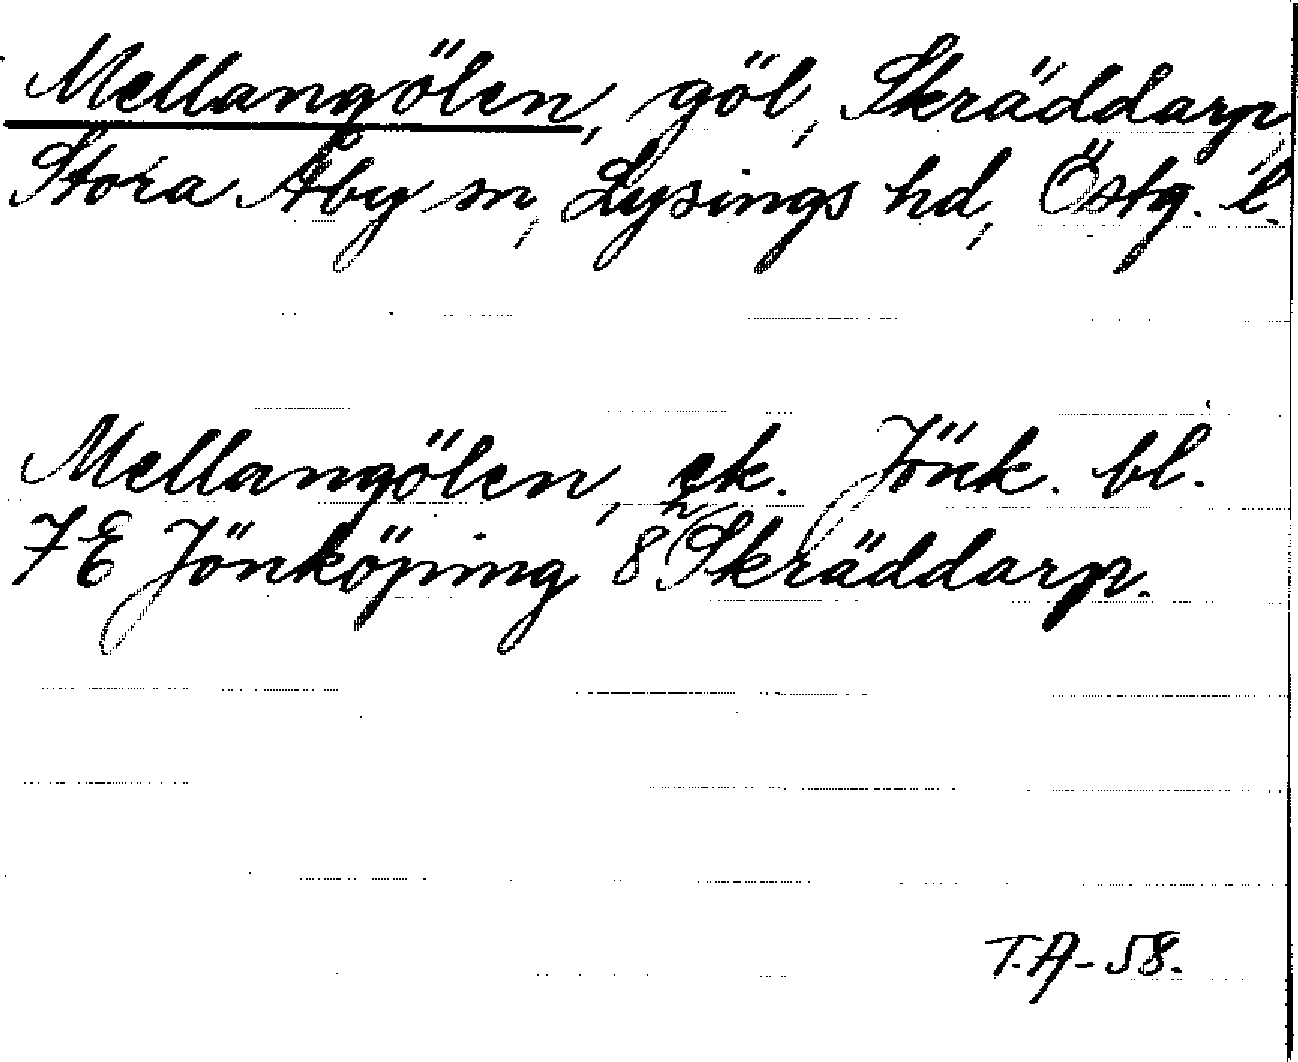 Mellangölen, göl, Skräddarp,
Stora Åby sn, Lysings hd, Östg. l.
Mellangölen, ek. Jönk. bl.
7E Jönköping 8h Skräddarp.
T.A-58.